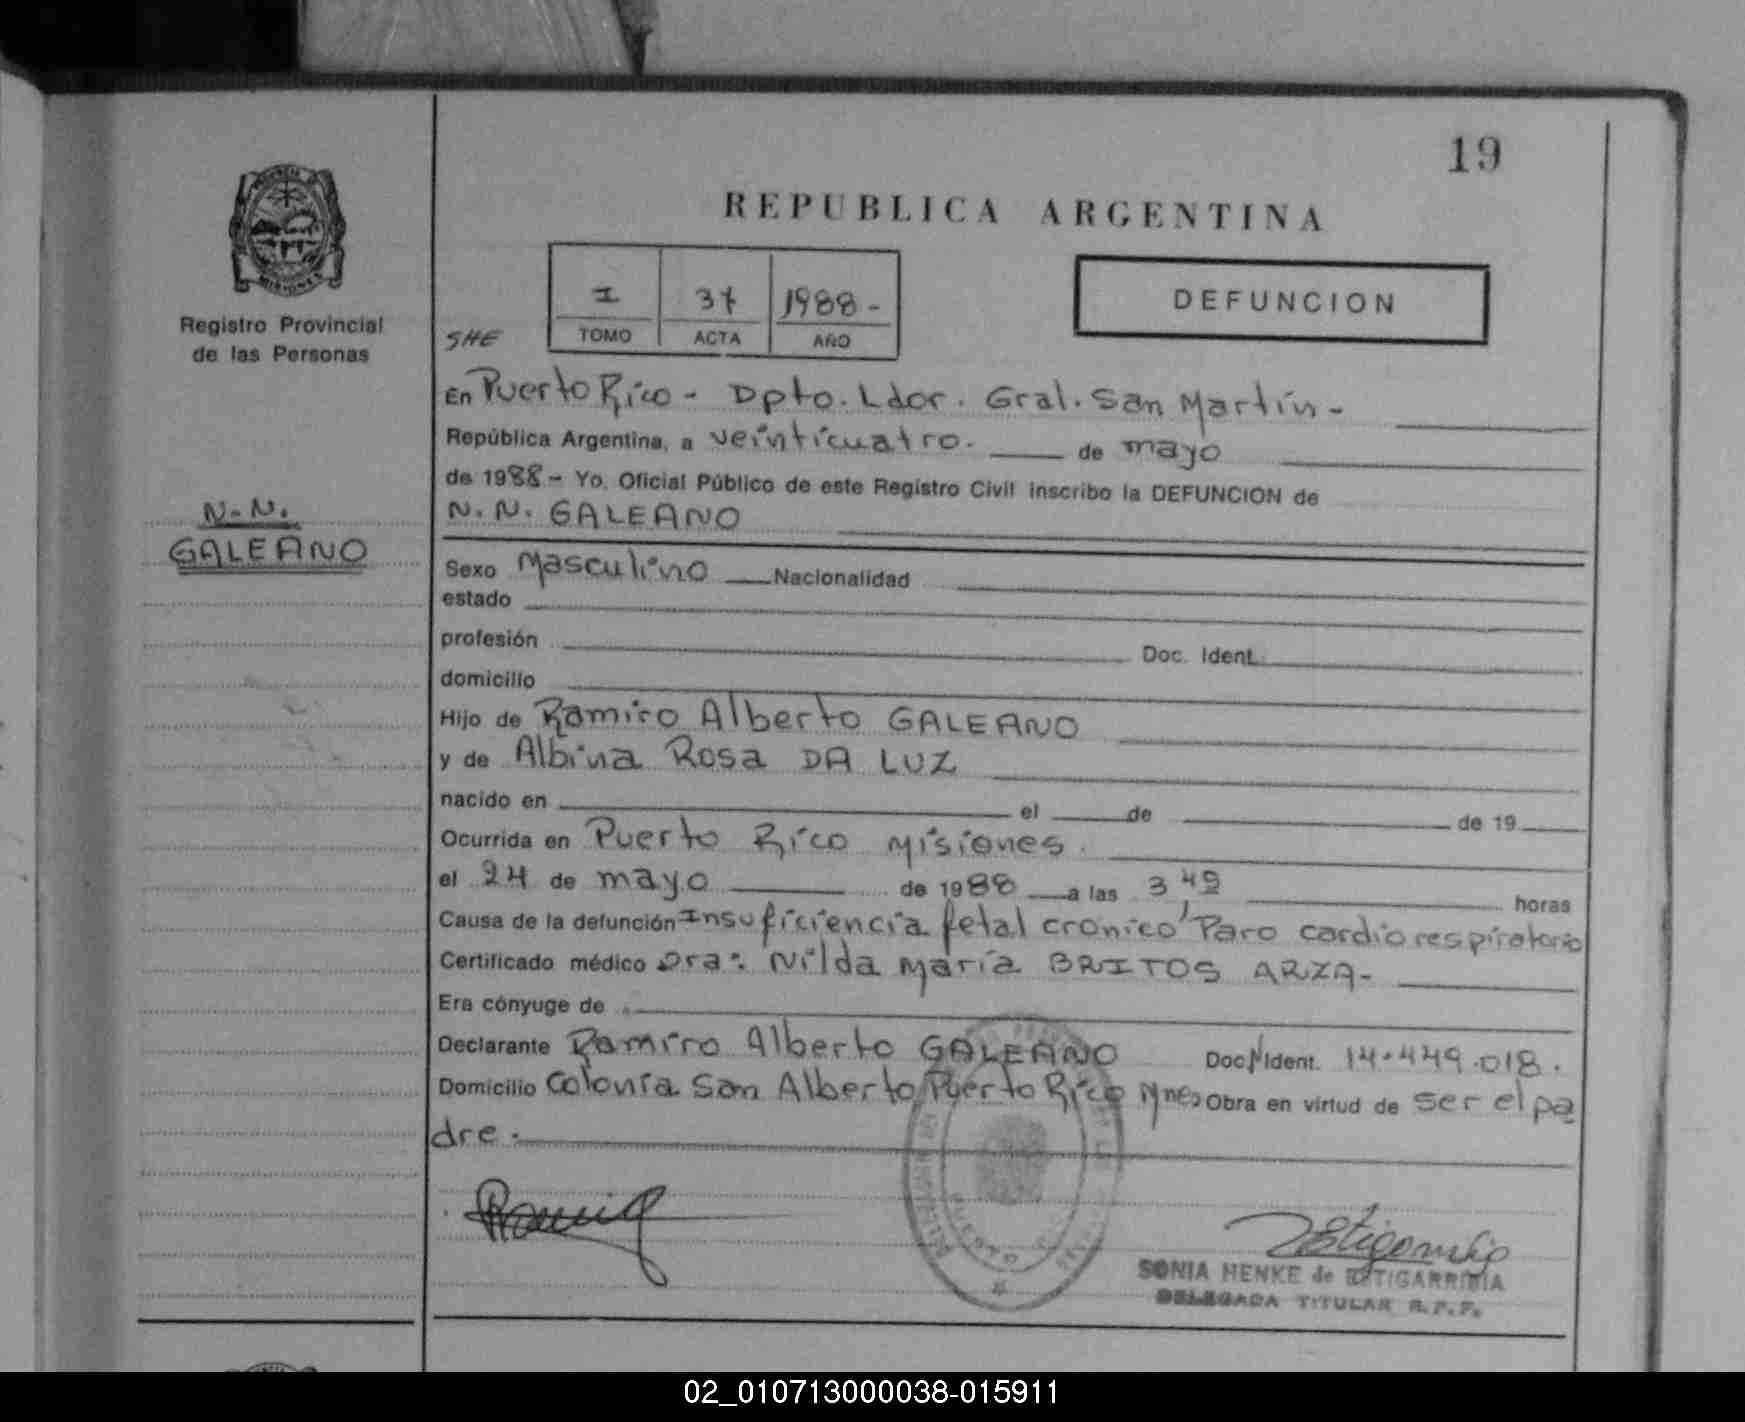 19
REPUBLICA ARGENTINA
Registro Provincial
de las Personas
SHE
I 37 1988-
TOMO ACTA AÑO
DEFUNCION
N.N.
GALEANO
En Puerto Rico - Dpto. Ldor. Gral. San Martín -
República Argentina, a veinticuatro. de mayo
de 1988 - Yo, Oficial Público de este Registro Civil inscribo la DEFUNCION de
N. N. GALEANO
Sexo Masculino Nacionalidad
estado
profesión Doc. Ident.
domicilio
Hijo de Ramiro Alberto GALEANO
y de Albina Rosa DA LUZ
nacido en el de de 19
Ocurrida en Puerto Rico Misiones.
el 24 de mayo de 1988 a las 3,49 horas
Causa de la defunción Insuficiencia fetal cronico Paro cardiorespiratorio
Certificado médico Dra: Nilda María BRITOS ARZA-
Era cónyuge de
Declarante Ramiro Alberto GALEANO Doc. Ident. 14.449.018.
Domicilio Colonia San Alberto Puerto Rico Mnes Obra en virtud de ser el pa
dre.
SONIA HENKE de ESTIGARRIBIA
DELEGADA TITULAR R.P.P.
02_010713000038-015911